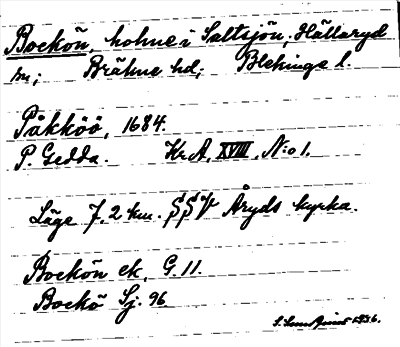 Bockön, holme i Saltsjön; Hällaryd
sn; Bräkne hd; Blekinge l.
Påkköö, 1684.
P. Gedda. Kr A, XVIII, N:o 1.
Läge 7,2 km. SSV Åryds kyrka.
Bockön ek. G. 11.
Bockö Sj. 96
1936.